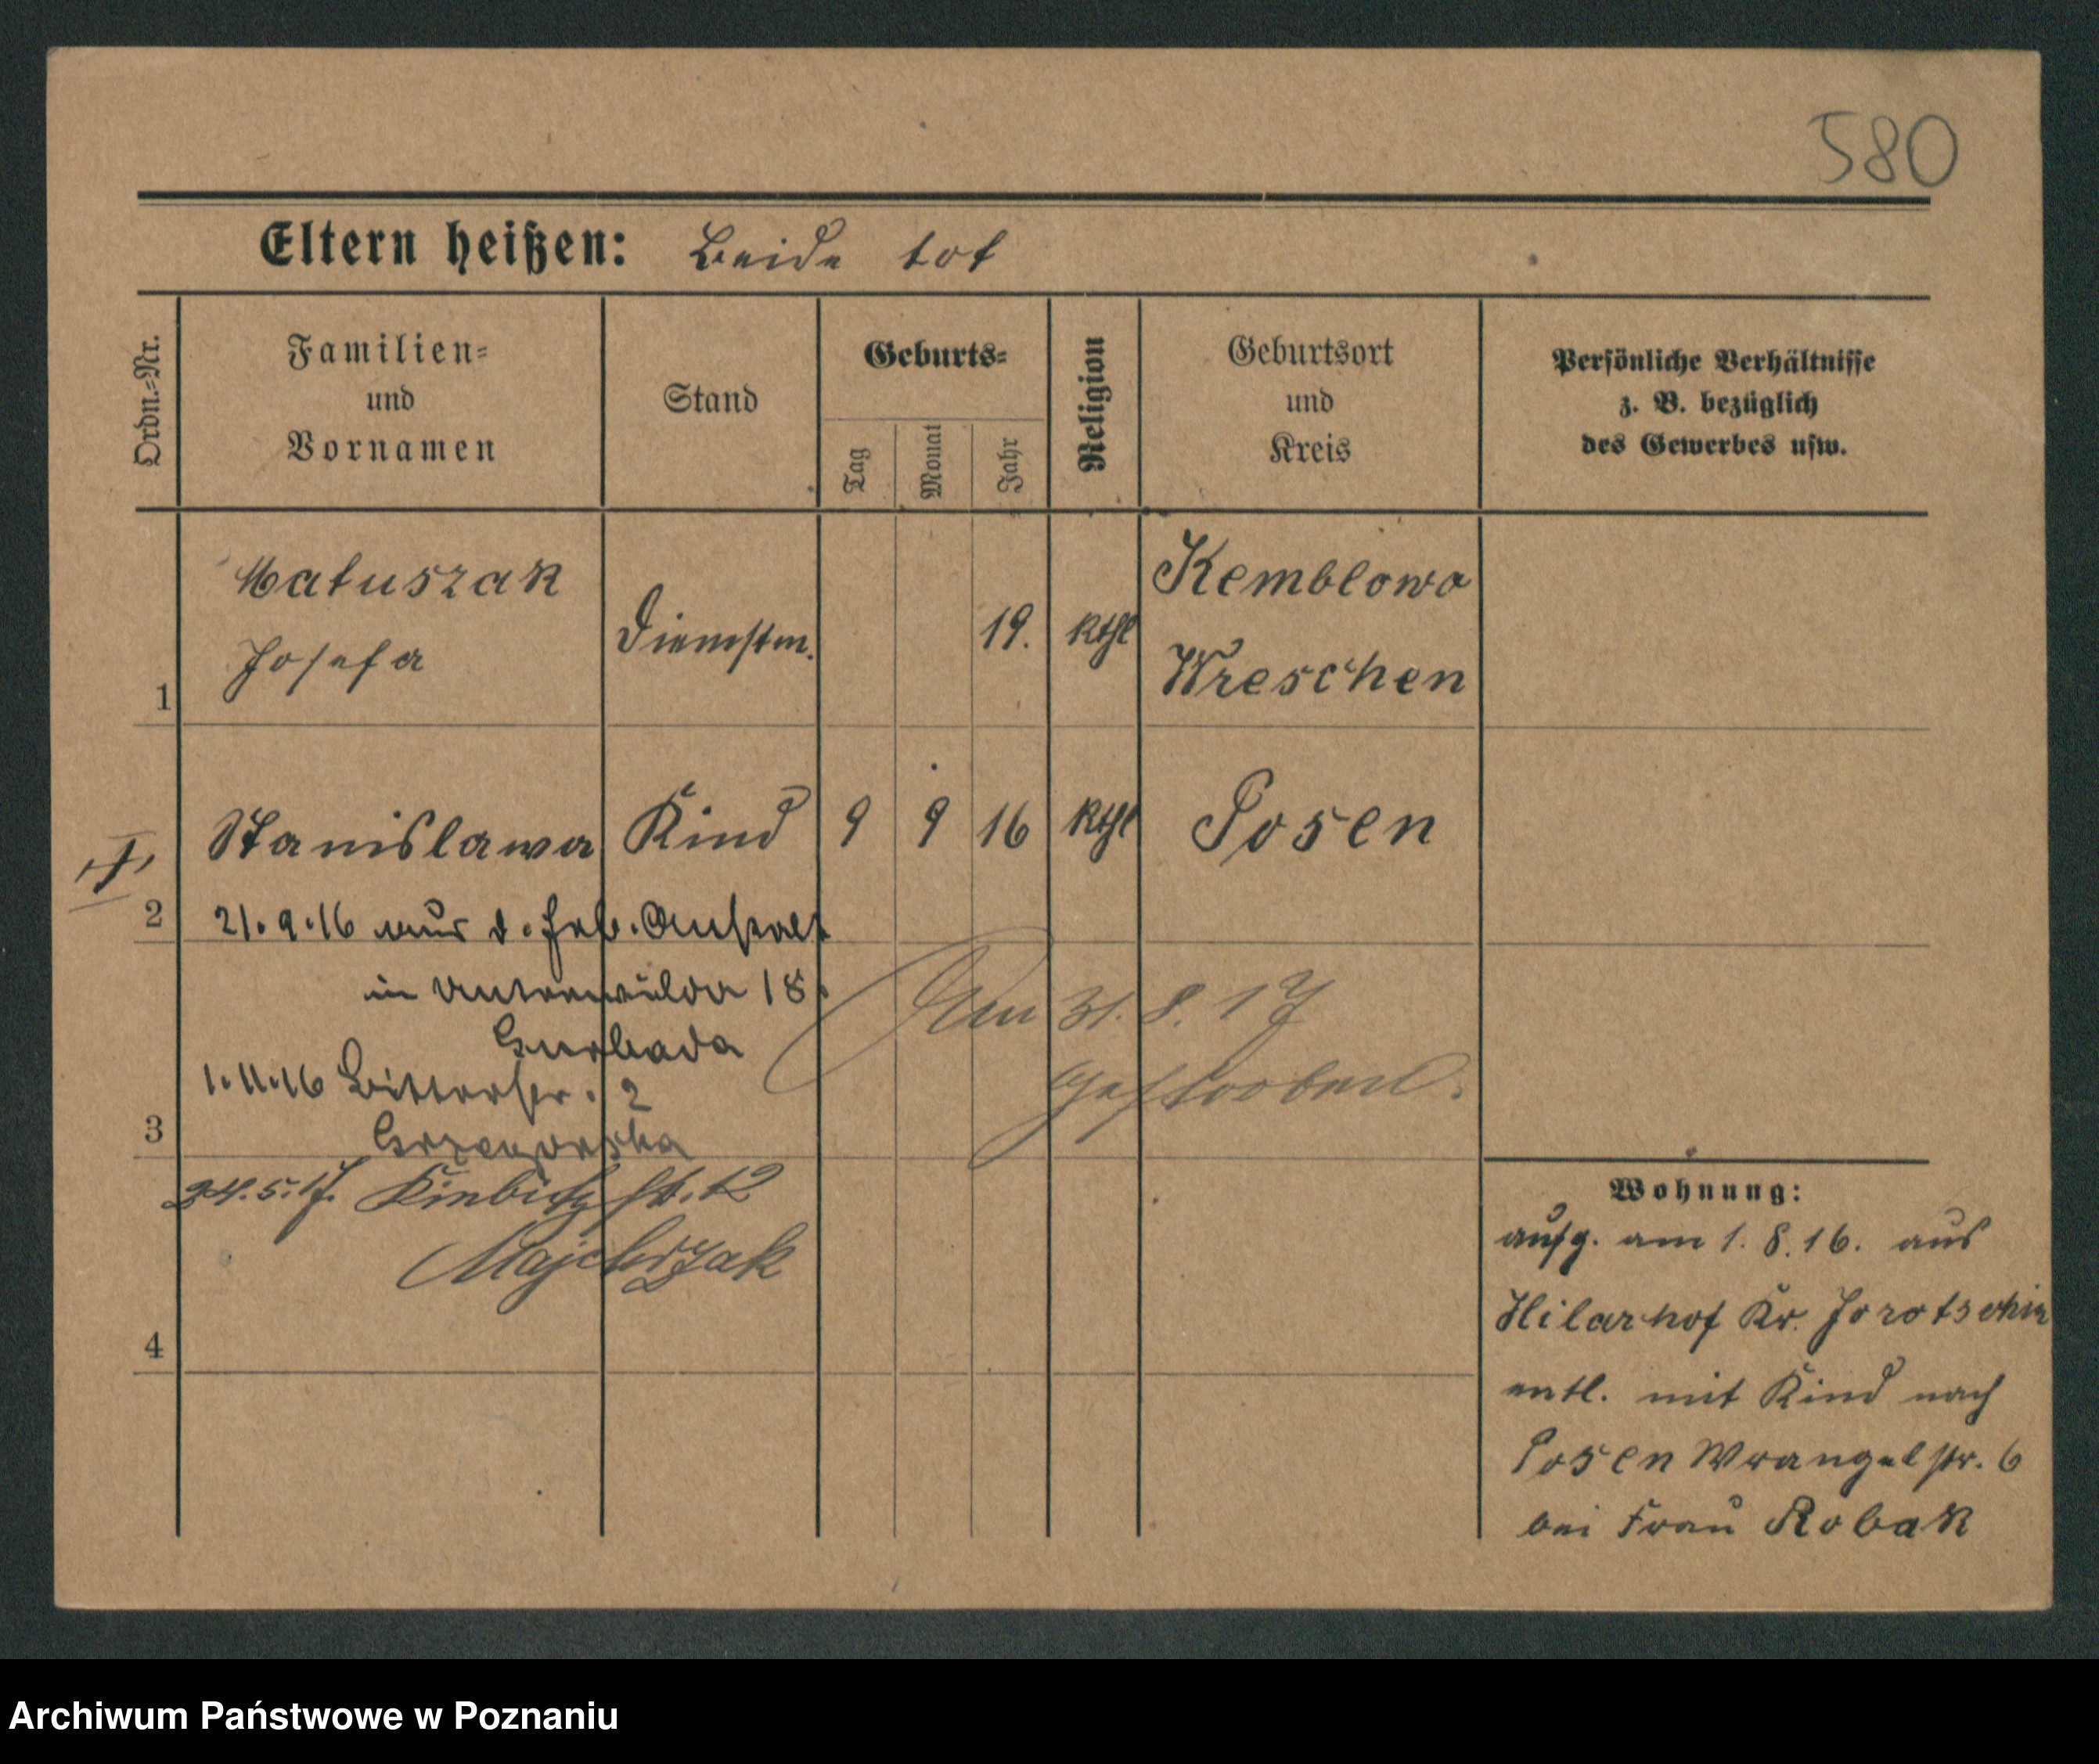 580
Eltern heißen: Beide tot
Ordn.-Nr.
Familien-
und
Vornamen
Stand
Geburts-
Tag
Monat
Jahr
Religion
Geburtsort
und
Kreis
Persönliche Verhältnisse
z. B. bezüglich
des Gewerbes usw.
1
Matuszak
Josefa
Dienstm.
19.
kthl
Kemblowo
Wreschen
2
Stanislawa
Kind
9
9
16
kthl
Posen
21.9.16 aus d. Heb. Anstalt
in Unterwilda 18
1.11.16 Bitterstr. 2
3
24.5.17.
Majchrzak
Am 31.8.17
gestorben.
4
Wohnung:
aufg. am 1.8.16. aus
Hilarhof Kr. Jarotschin
entl. mit Kind nach
Posen Wrangelstr. 6
bei Frau Robak
Archiwum Państwowe w Poznaniu